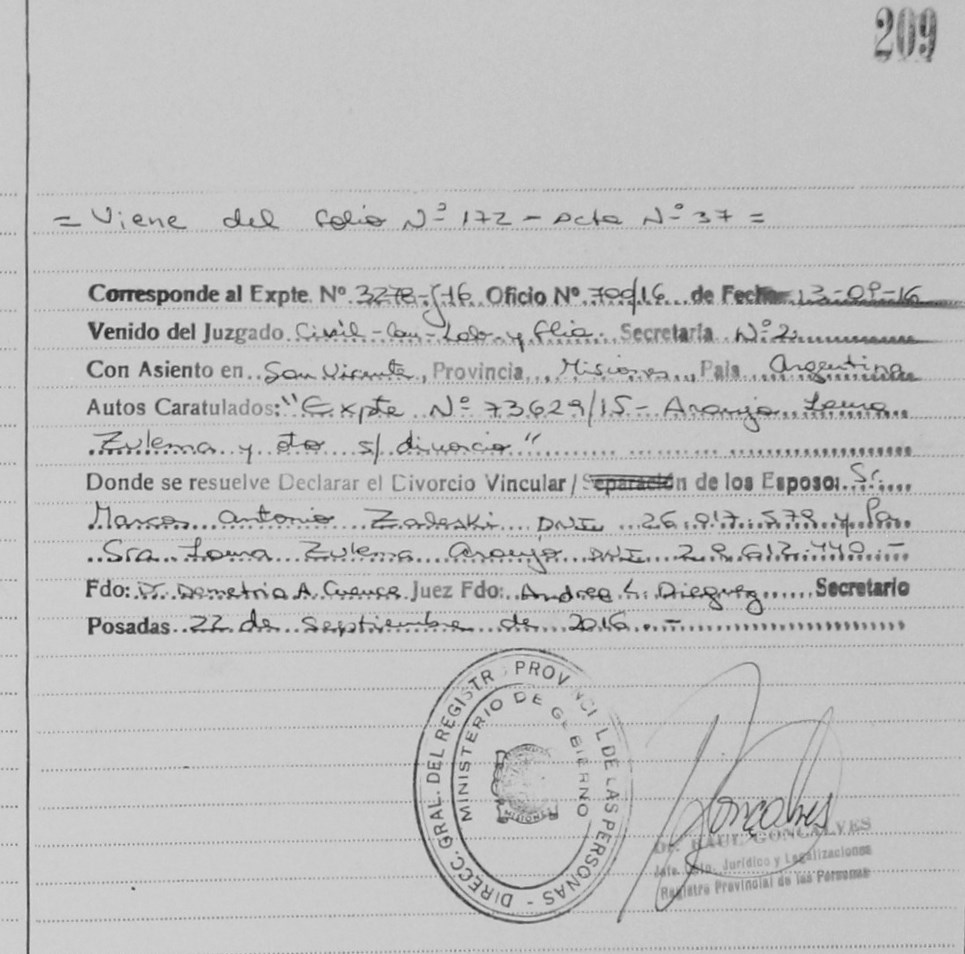 209
= Viene del Folio Nº 172 - Acta Nº 37 =
Corresponde al Expte. Nº 3278-J-16 Oficio Nº 700/16 de Fecha 13-09-16
Venido del Juzgado Civil - Com - Lab. y Flia. Secretaria Nº 2
Con Asiento en San Vicente, Provincia Misiones, Pais Argentina
Autos Caratulados: "Expte Nº 73629/15 - Araujo
Zulema y otro s/ divorcio"
Donde se resuelve Declarar el Divorcio Vincular / Separación de los Esposo: Sr.
Marcos Antonio Zadeski DNI 26.917.578 y la
Sra Zulema Araujo DNI
Fdo: Dr. Demetrio A. Cuenca Juez Fdo: Andrea L. Dieguez Secretario
Posadas 22 de Septiembre de 2016.-
DIRECC. GRAL. DEL REGISTR PROVINCIAL DE LAS PERSONAS -
MINISTERIO DE GOBIERNO
MISIONES
Gonçalves
Dr. RAUL GONCALVES
Jefe Dpto. Jurídico y Legalizaciones
Registro Provincial de las Personas